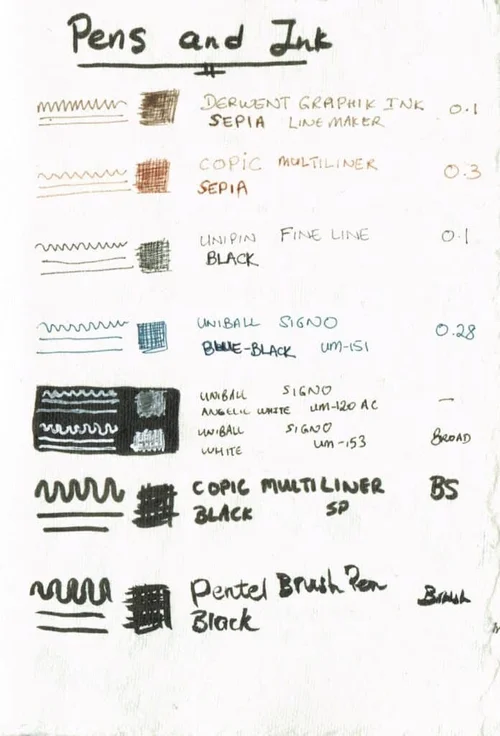 Pens and Ink
DERWENT GRAPHIK INK 0.1
SEPIA LINE MAKER
COPIC MULTILINER 0.3
SEPIA
UNIPIN FINE LINE 0.1
BLACK
UNIBALL SIGNO 0.28
BLUE-BLACK UM-151
UNIBALL SIGNO –
ANGELIC WHITE UM-120 AC
UNIBALL SIGNO BROAD
WHITE UM-153
COPIC MULTILINER BS
BLACK SP
Pentel Brush Pen Brush
Black